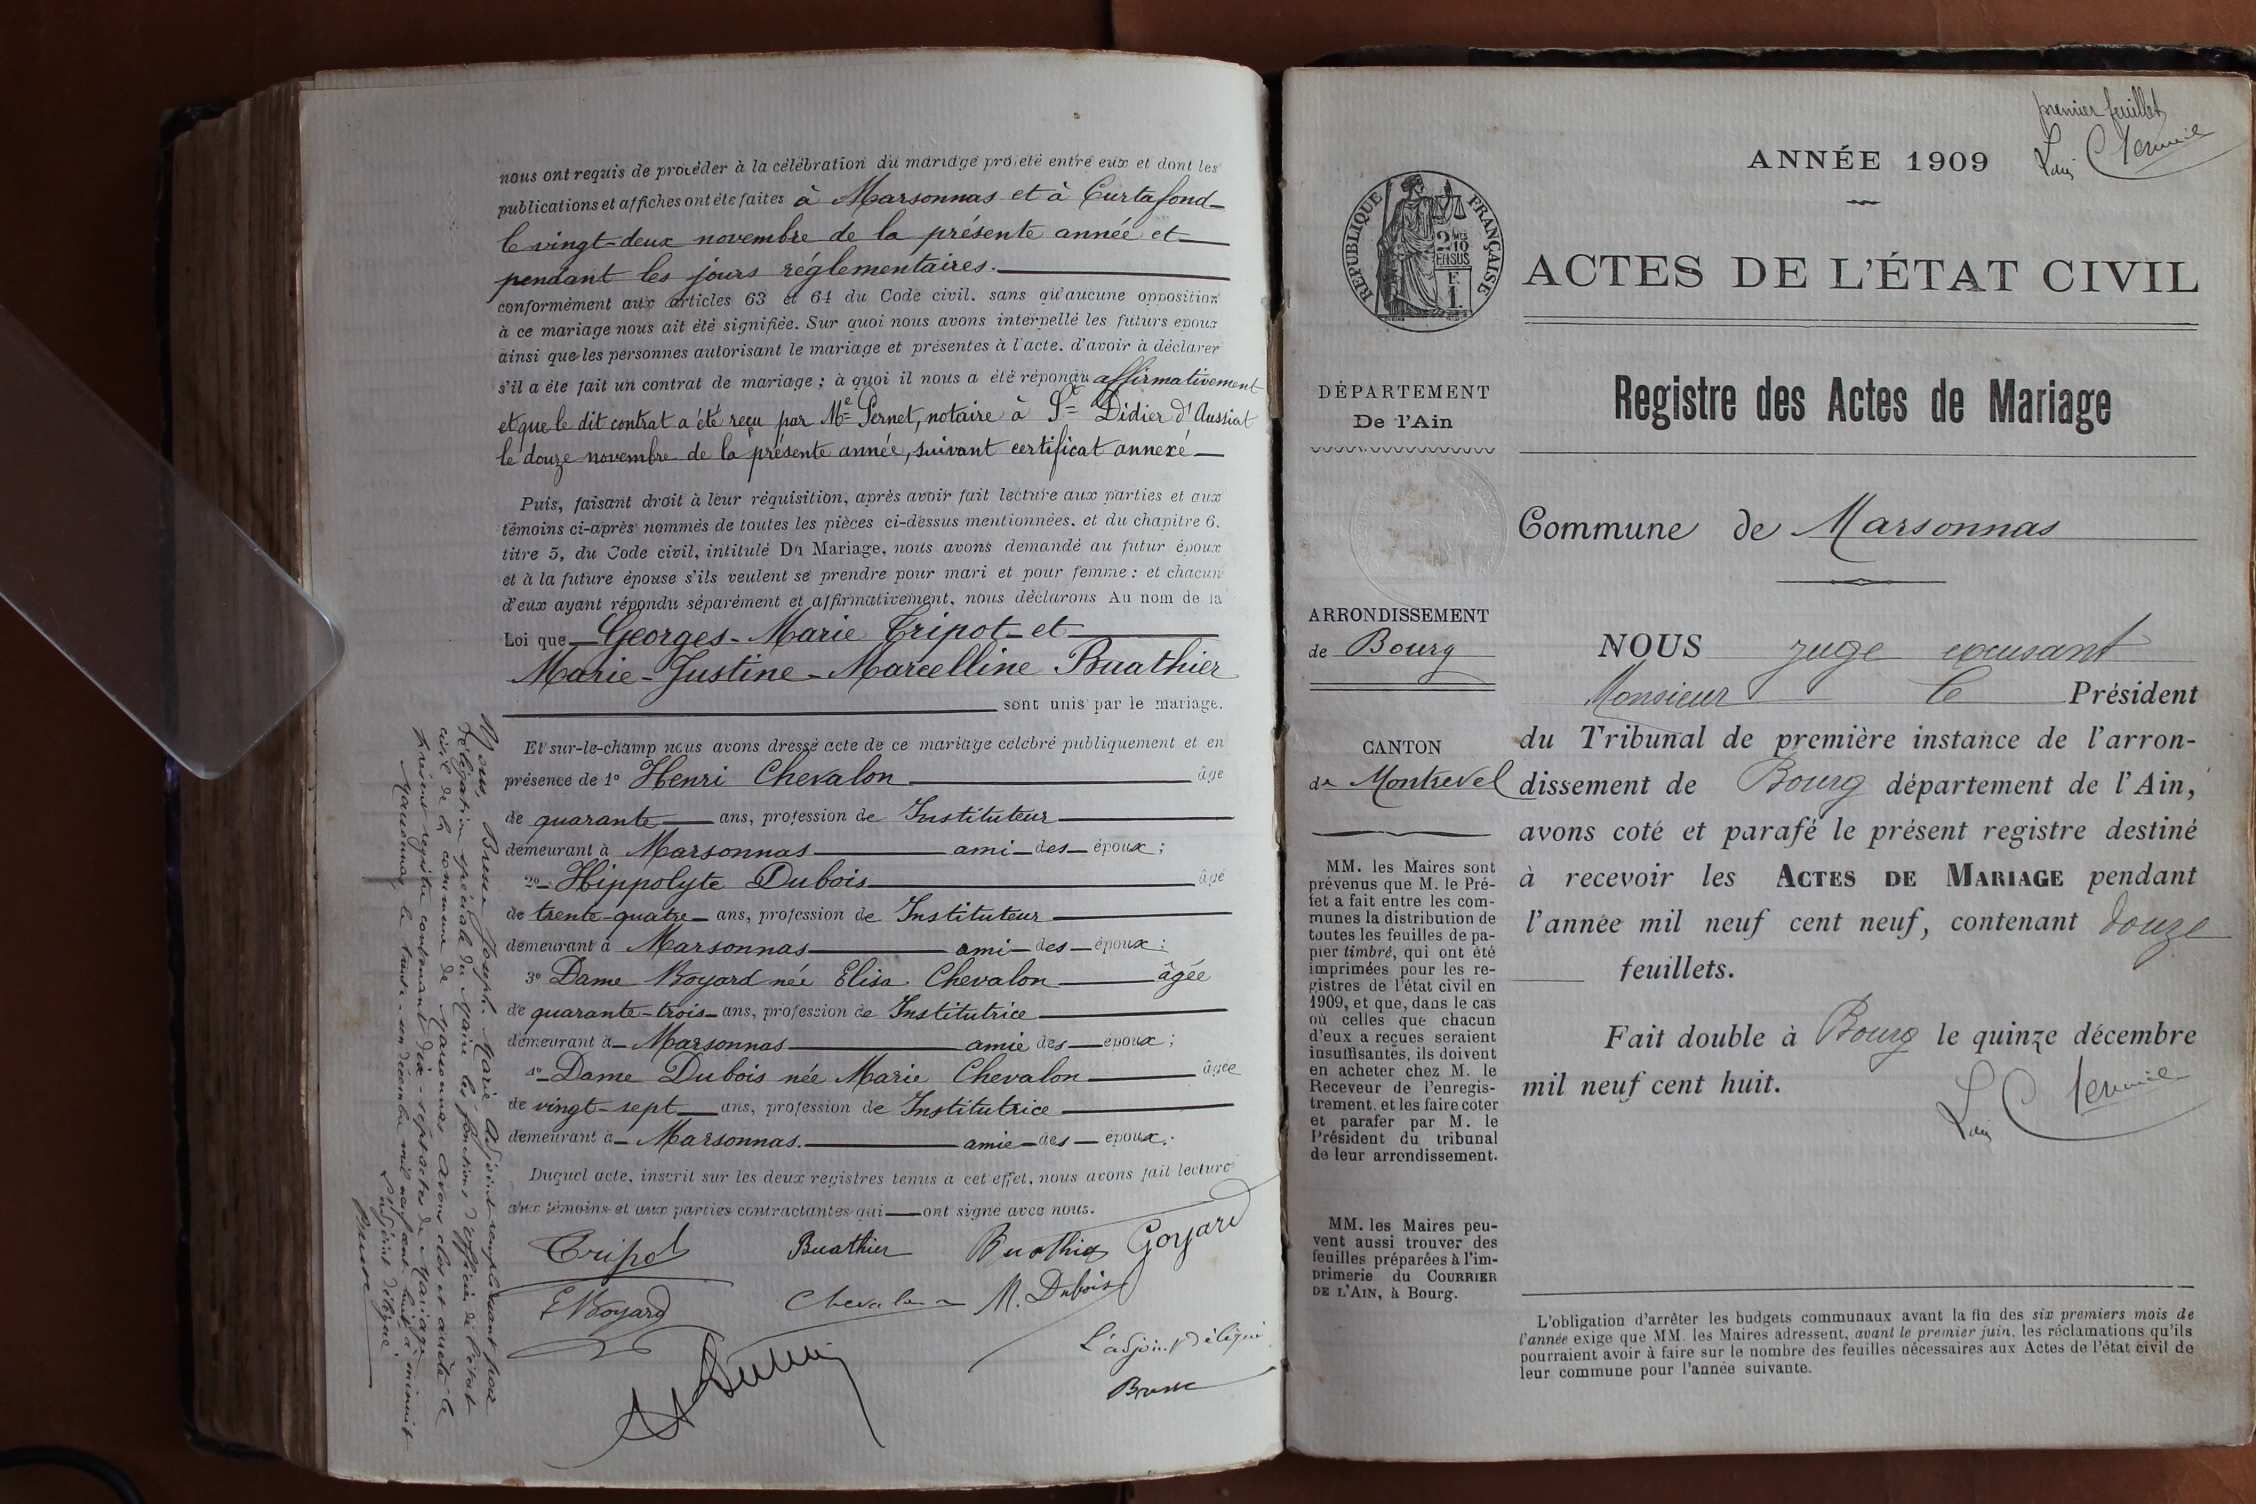 nous ont requis de procéder à la célébration du mariage projeté entre eux et dont les
publications et affiches ont été faites à Marsonnas et à Curtafond
le vingt-deux novembre de la présente année et
pendant les jours réglementaires.
conformément aux articles 63 et 64 du Code civil, sans qu'aucune opposition
à ce mariage nous ait été signifiée. Sur quoi nous avons interpellé les futurs époux
ainsi que les personnes autorisant le mariage et présentes à l'acte, d'avoir à déclarer
s'il a été fait un contrat de mariage ; à quoi il nous a été répondu affirmativement
et que le dit contrat a été reçu par Me Pernet, notaire à St Didier d'Aussiat
le douze novembre de la présente année, suivant certificat annexé
Puis, faisant droit à leur réquisition, après avoir fait lecture aux parties et aux
témoins ci-après nommés de toutes les pièces ci-dessus mentionnées, et du chapitre 6,
titre 5, du Code civil, intitulé Du Mariage, nous avons demandé au futur époux
et à la future épouse s'ils veulent se prendre pour mari et pour femme : et chacun
d'eux ayant répondu séparément et affirmativement, nous déclarons Au nom de la
Loi que Georges-Marie Tripot et
Marie-Justine-Marcelline Buathier
sont unis par le mariage.
Et sur-le-champ nous avons dressé acte de ce mariage célébré publiquement et en
présence de 1° Henri Chevalon âgé
de quarante ans, profession de Instituteur
demeurant à Marsonnas ami des époux ;
2° Hippolyte Dubois âgé
de trente-quatre ans, profession de Instituteur
demeurant à Marsonnas ami des époux ;
3° Dame Boyard née Elisa Chevalon âgée
de quarante-trois ans, profession de Institutrice
demeurant à Marsonnas amie des époux ;
4° Dame Dubois née Marie Chevalon âgée
de vingt-sept ans, profession de Institutrice
demeurant à Marsonnas. amie des époux.
Duquel acte, inscrit sur les deux registres tenus à cet effet, nous avons fait lecture
aux témoins et aux parties contractantes qui ont signé avec nous.
Tripot Buathier Buathier Goyard
E Boyard Chevalon M. Dubois
L'adjoint délégué
Brune
Nous, Brune Joseph-Marie Adjoint remplissant par
délégation spéciale du Maire les fonctions d'officier de l'état
civil de la commune de Marsonnas avons clos et arrêté le
présent registre contenant dix-sept actes de Mariage
Marsonnas le trente-un décembre mil neuf cent huit à minuit
L'adjoint délégué
Brune
premier feuillet
ANNÉE 1909
RÉPUBLIQUE FRANÇAISE
2 10 MES
EN SUS
F
1
ACTES DE L'ÉTAT CIVIL
DÉPARTEMENT
De l'Ain
Registre des Actes de Mariage
Commune de Marsonnas
ARRONDISSEMENT
de Bourg
CANTON
de Montrevel
MM. les Maires sont
prévenus que M. le Pré-
fet a fait entre les com-
munes la distribution de
toutes les feuilles de pa-
pier timbré, qui ont été
imprimées pour les re-
gistres de l'état civil en
1909, et que, dans le cas
où celles que chacun
d'eux a reçues seraient
insuffisantes, ils doivent
en acheter chez M. le
Receveur de l'enregis-
trement, et les faire coter
et parafer par M. le
Président du tribunal
de leur arrondissement.
MM. les Maires peu-
vent aussi trouver des
feuilles préparées à l'im-
primerie du COURRIER
DE L'AIN, à Bourg.
NOUS juge excusant
Monsieur le Président
du Tribunal de première instance de l'arron-
dissement de Bourg département de l'Ain,
avons coté et parafé le présent registre destiné
à recevoir les ACTES DE MARIAGE pendant
l'année mil neuf cent neuf, contenant douze
feuillets.
Fait double à Bourg le quinze décembre
mil neuf cent huit.
L'obligation d'arrêter les budgets communaux avant la fin des six premiers mois de
l'année exige que MM. les Maires adressent, avant le premier juin, les réclamations qu'ils
pourraient avoir à faire sur le nombre des feuilles nécessaires aux Actes de l'état civil de
leur commune pour l'année suivante.